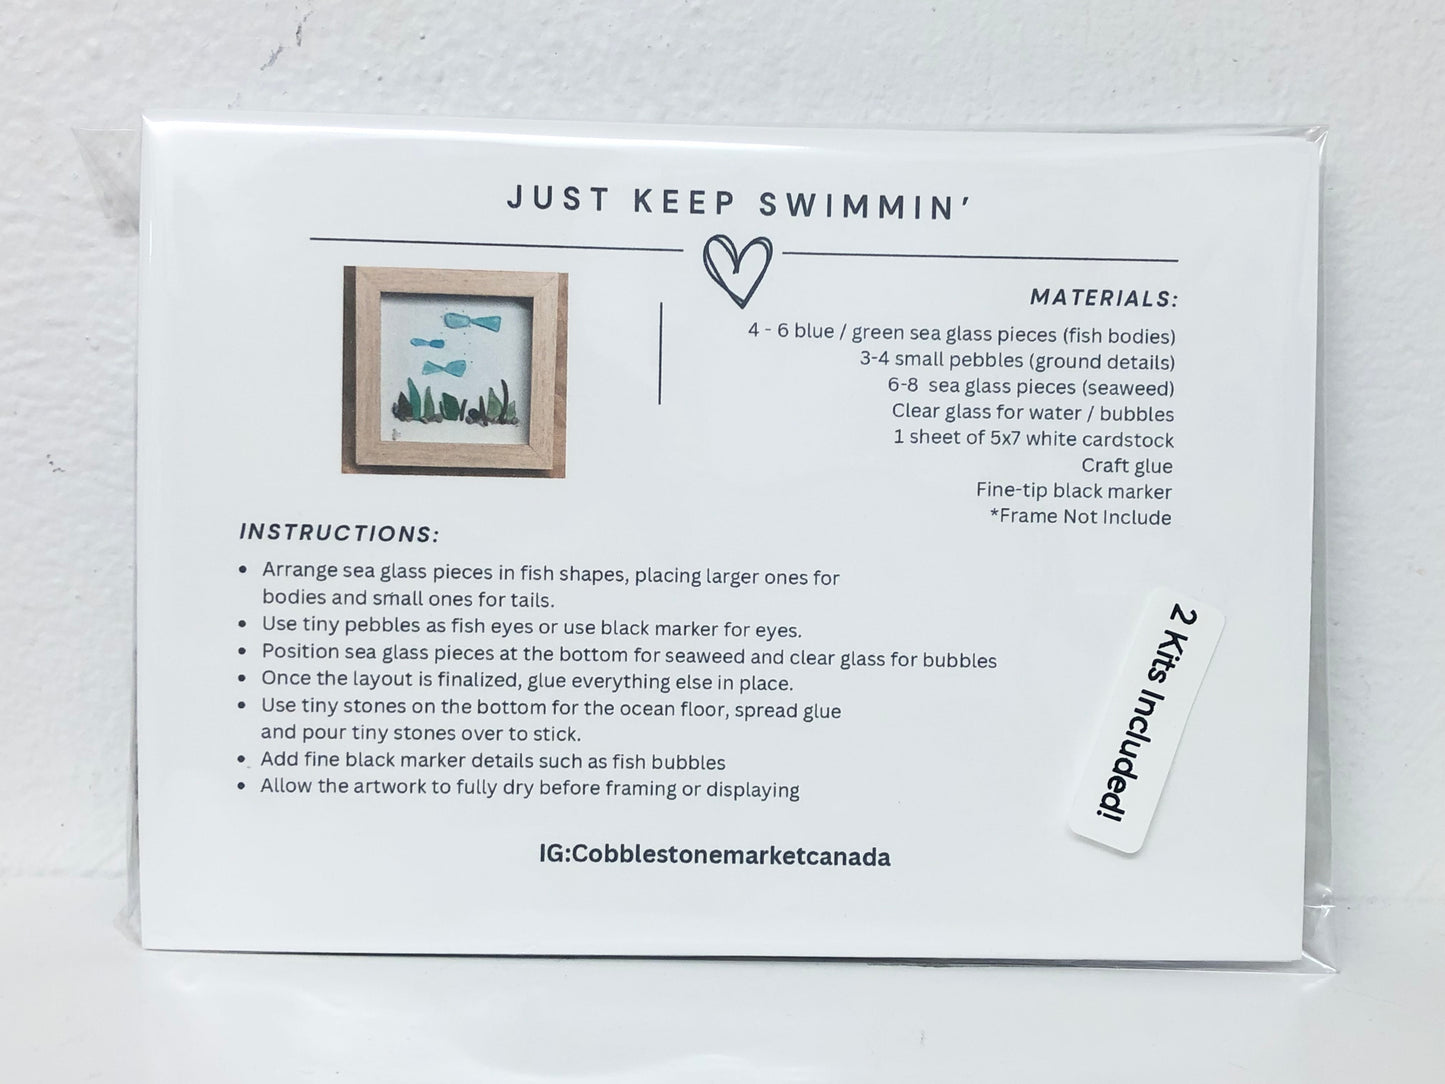 JUST KEEP SWIMMIN'
MATERIALS:
4 - 6 blue / green sea glass pieces (fish bodies)
3-4 small pebbles (ground details)
6-8 sea glass pieces (seaweed)
Clear glass for water / bubbles
1 sheet of 5x7 white cardstock
Craft glue
Fine-tip black marker
*Frame Not Include
INSTRUCTIONS:
• Arrange sea glass pieces in fish shapes, placing larger ones for
bodies and small ones for tails.
• Use tiny pebbles as fish eyes or use black marker for eyes.
• Position sea glass pieces at the bottom for seaweed and clear glass for bubbles
• Once the layout is finalized, glue everything else in place.
• Use tiny stones on the bottom for the ocean floor, spread glue
and pour tiny stones over to stick.
• Add fine black marker details such as fish bubbles
• Allow the artwork to fully dry before framing or displaying
2 Kits Included!
IG:Cobblestonemarketcanada